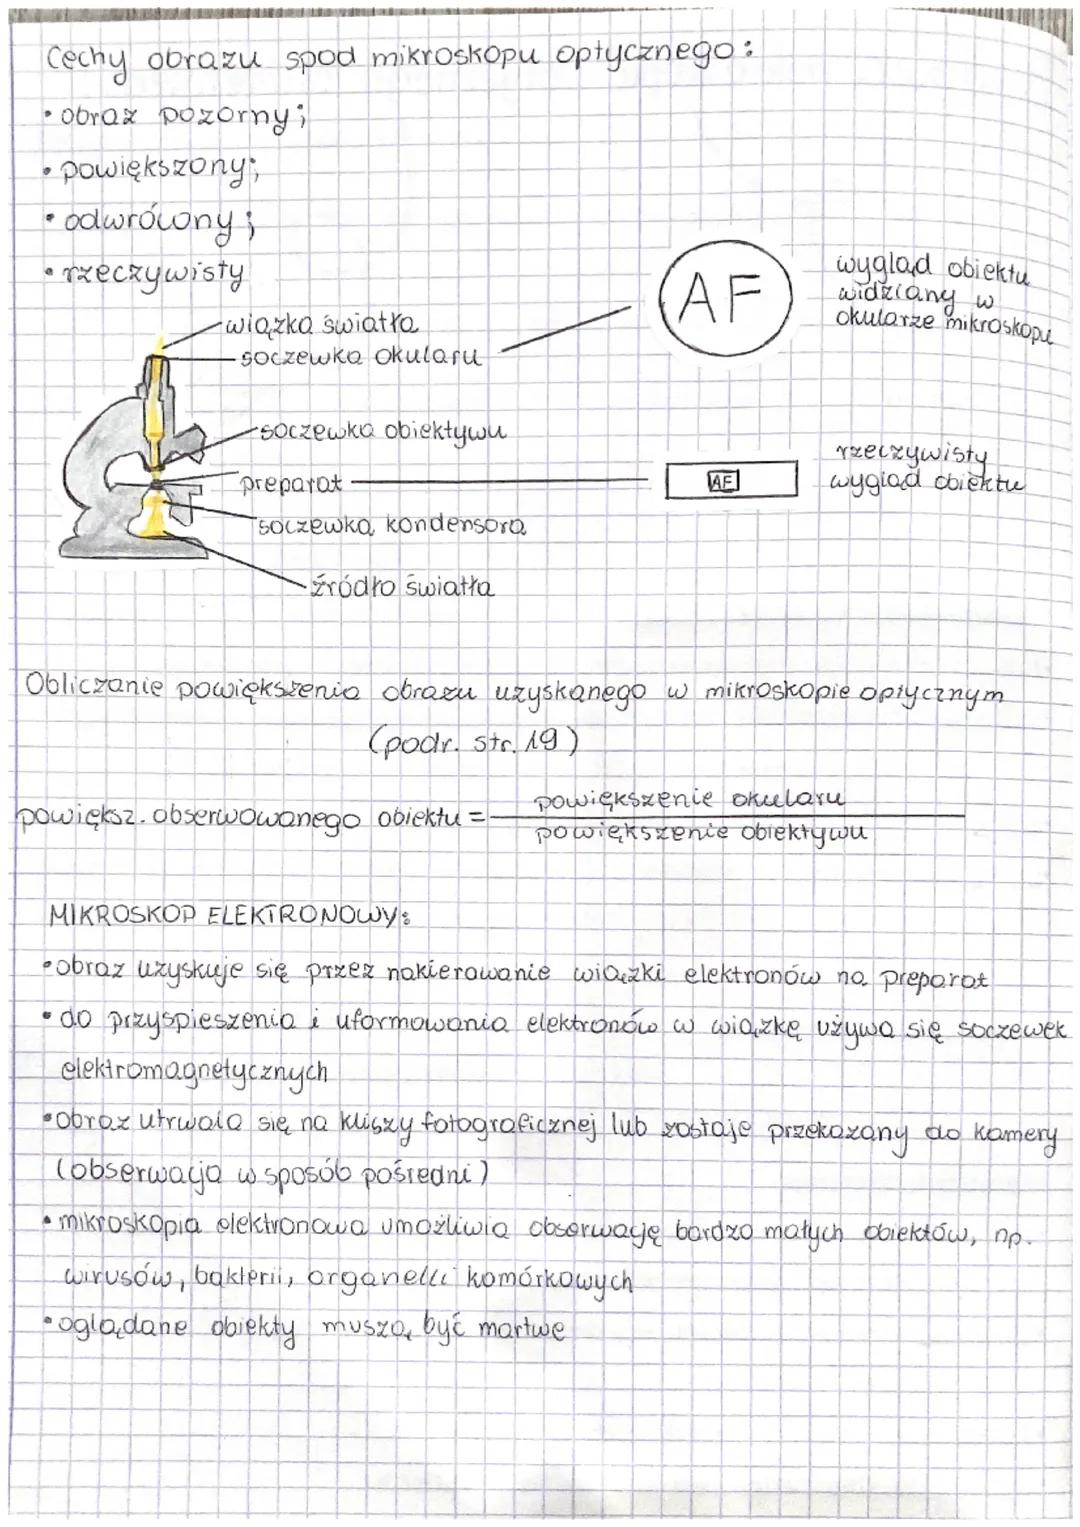 Cechy obrazu spod mikroskopu optycznego:
• obraz pozorny;
• powiększony;
• odwrócony;
• rzeczywisty
wiązka światła
soczewka okularu
AF
wygląd obiektu
widziany w
okularze mikroskopu
soczewka obiektywu
preparat
AF
rzeczywisty
wygląd obiektu
soczewka kondensora
źródło światła
Obliczanie powiększenia obrazu uzyskanego w mikroskopie optycznym
(podr. str. 19)
powiększ. obserwowanego obiektu = powiększenie okularu
powiększenie obiektywu
MIKROSKOP ELEKTRONOWY:
• obraz uzyskuje się przez nakierowanie wiązki elektronów na preparat
• do przyspieszenia i uformowania elektronów w wiązkę używa się soczewek
elektromagnetycznych
• obraz utrwala się na kliszy fotograficznej lub zostaje przekazany do kamery
(obserwacja w sposób pośredni)
• mikroskopia elektronowa umożliwia obserwację bardzo małych obiektów, np.
wirusów, bakterii, organelli komórkowych
• oglądane obiekty muszą być martwe